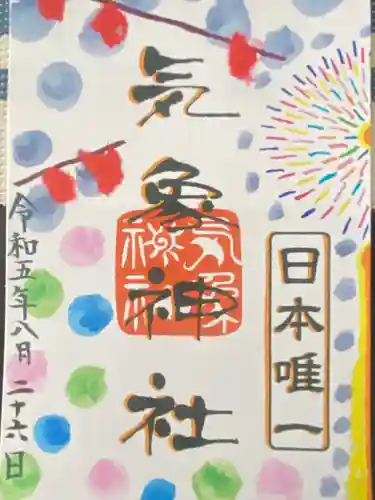 日本唯一
気象神社
令和五年八月二十六日